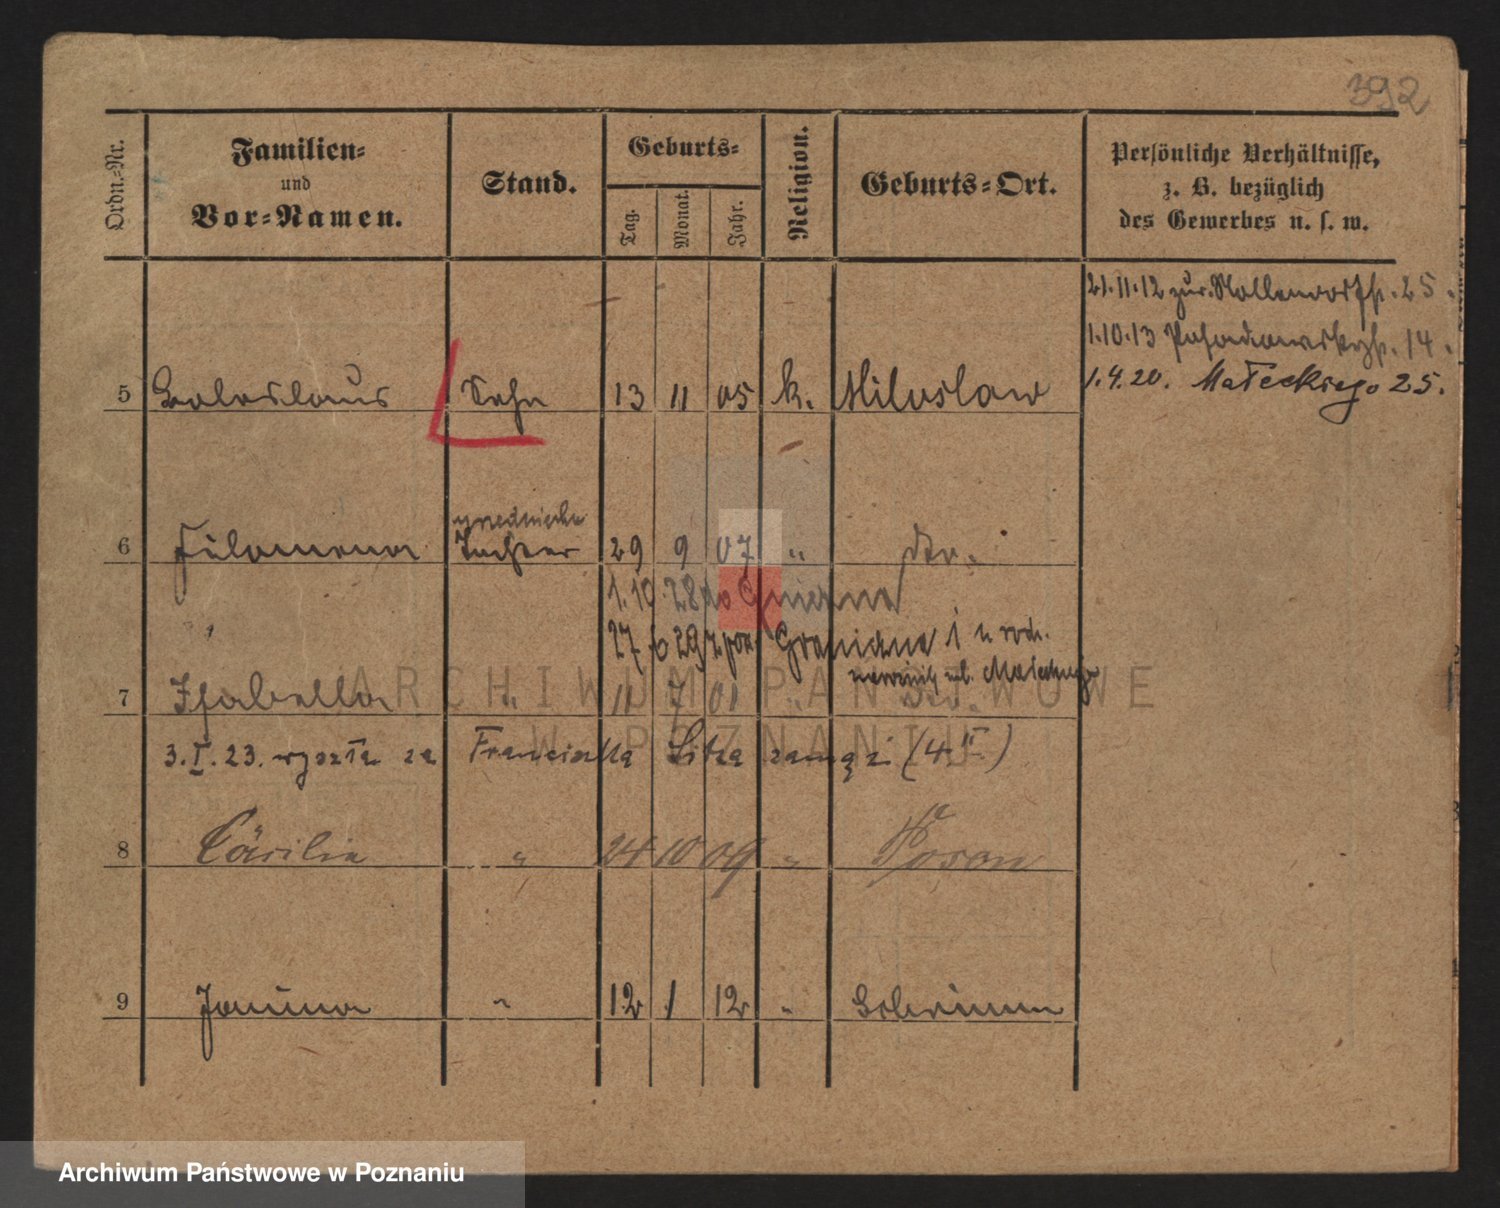 392
Ordn.-Nr.
Familien-
und
Vor-Namen.
Stand.
Geburts-
Tag.
Monat.
Jahr.
Religion.
Geburts-Ort.
Persönliche Verhältnisse,
z. B. bezüglich
des Gewerbes u. s. w.
21.11.12 zur. Nollendorfstr. 25.
1.10.13 Posadowskystr. 14.
5 Boleslaus Sohn 13 11 05 k. Miloslaw
1.4.20. Małeckiego 25.
6 Filomena Tochter 29 9 07 " dto.
1.10.28 do Gniezna
27 6 29 z pow. Gniezna
7 Isabella " 11 7 01 " dto.
3.I.23. wyszła za Franciszka zamąż (4.II)
8 Cäcilia " 24 10 09 " Posen
9 Janina " 12 1 12 "
ARCHIWUM PAŃSTWOWE
W POZNANIU
Archiwum Państwowe w Poznaniu